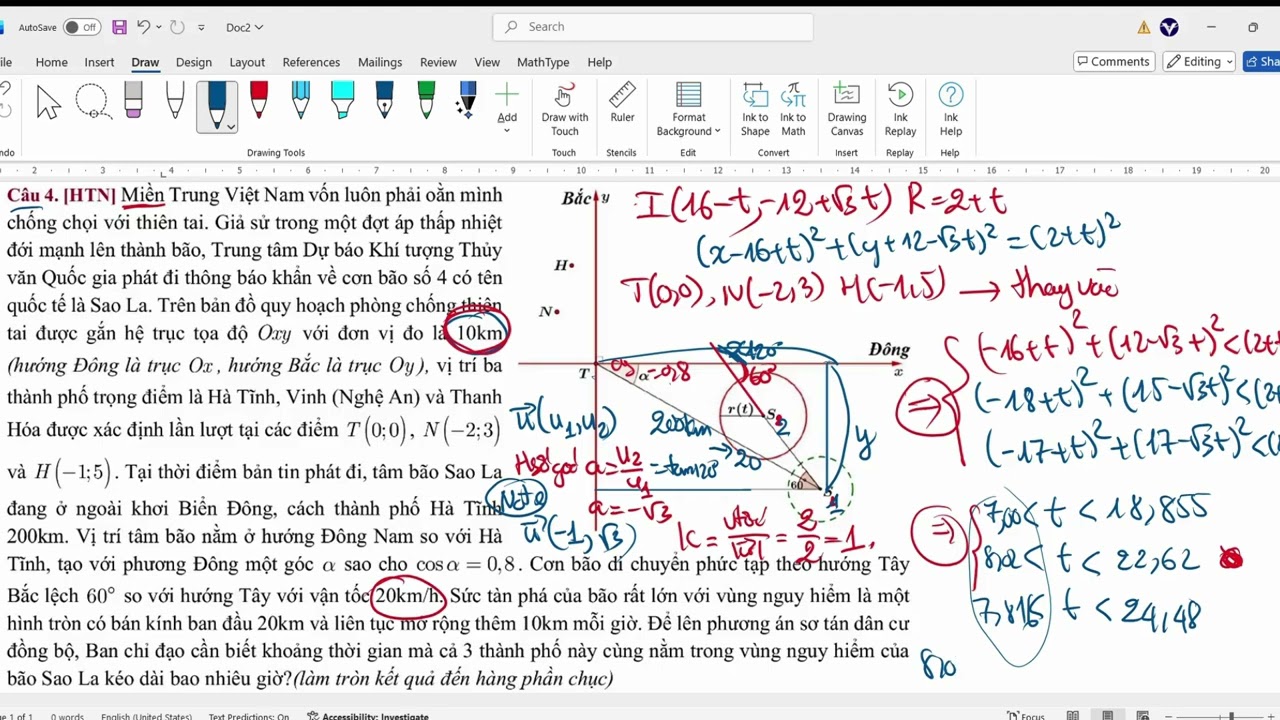 AutoSave Off Doc2 Search
File Home Insert Draw Design Layout References Mailings Review View MathType Help Comments Editing Sha
Add
Draw with Touch
Ruler
Format Background
Ink to Shape
Ink to Math
Drawing Canvas
Ink Replay
Ink Help
Undo Drawing Tools Touch Stencils Edit Convert Insert Replay Help
2 1 2 3 4 5 6 7 8 9 10 11 12 13 14 15 16 17 18 19 20
Câu 4. [HTN] Miền Trung Việt Nam vốn luôn phải oằn mình
chống chọi với thiên tai. Giả sử trong một đợt áp thấp nhiệt
đới mạnh lên thành bão, Trung tâm Dự báo Khí tượng Thủy
văn Quốc gia phát đi thông báo khẩn về cơn bão số 4 có tên
quốc tế là Sao La. Trên bản đồ quy hoạch phòng chống thiên
tai được gắn hệ trục tọa độ Oxy với đơn vị đo là 10km
(hướng Đông là trục Ox, hướng Bắc là trục Oy), vị trí ba
thành phố trọng điểm là Hà Tĩnh, Vinh (Nghệ An) và Thanh
Hóa được xác định lần lượt tại các điểm T(0;0), N(−2;3)
và H(−1;5). Tại thời điểm bản tin phát đi, tâm bão Sao La
đang ở ngoài khơi Biển Đông, cách thành phố Hà Tĩnh
200km. Vị trí tâm bão nằm ở hướng Đông Nam so với Hà
Tĩnh, tạo với phương Đông một góc α sao cho cosα = 0,8. Cơn bão di chuyển phức tạp theo hướng Tây
Bắc lệch 60° so với hướng Tây với vận tốc 20km/h. Sức tàn phá của bão rất lớn với vùng nguy hiểm là một
hình tròn có bán kính ban đầu 20km và liên tục mở rộng thêm 10km mỗi giờ. Để lên phương án sơ tán dân cư
đồng bộ, Ban chỉ đạo cần biết khoảng thời gian mà cả 3 thành phố này cùng nằm trong vùng nguy hiểm của
bão Sao La kéo dài bao nhiêu giờ?(làm tròn kết quả đến hàng phần chục)
Bắc y
H
N
T
Đông
x
α = 0,8
60°
r(t) S
2
200km
20
60
S
y
u⃗(u₁,u₂)
a = u₂/u₁ = tan120°
a = −√3
u⃗(−1,√3)
= 2/2 = 1.
I(16−t,−12+√3t) R=2+t
(x−16+t)²+(y+12−√3t)²=(2+t)²
T(0,0), N(−2,3) H(−1,5) → thay vào
(−16+t)²+(12−√3t)²<(2+
⇒ (−18+t)²+(15−√3t)²<(2
(−17+t)²+(17−√3t)²<(
7,00 < t < 18,855
⇒ 8,02 < t < 22,62
t < 24,48
Page 1 of 1 0 words English (United States) Text Predictions: On Accessibility: Investigate Focus